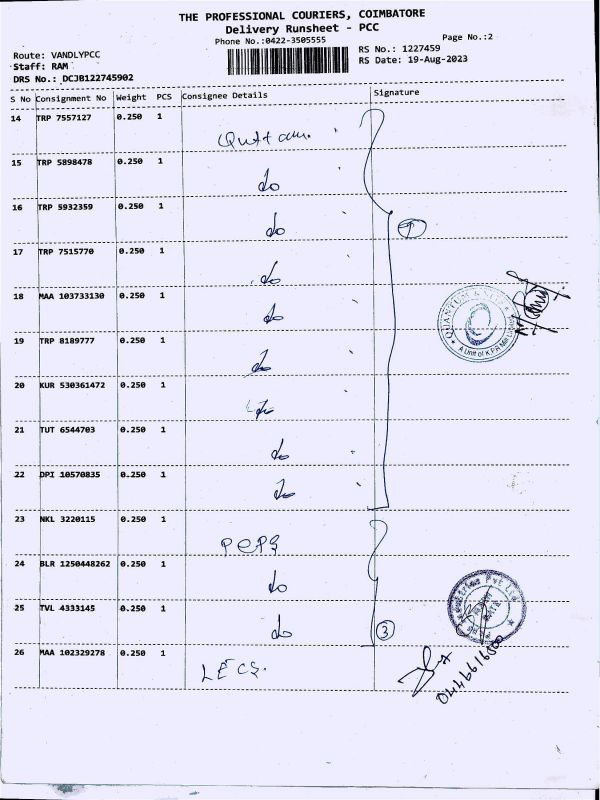 THE PROFESSIONAL COURIERS, COIMBATORE
Delivery Runsheet - PCC
Phone No.:0422-3505555
Page No.:2
Route: VANDLYPCC
RS No.: 1227459
Staff: RAM
RS Date: 19-Aug-2023
DRS No.: DCJB122745902
S No Consignment No Weight PCS Consignee Details Signature
14 TRP 7557127 0.250 1
15 TRP 5898478 0.250 1 do
16 TRP 5932359 0.250 1 do
17 TRP 7515770 0.250 1 do
18 MAA 103733130 0.250 1 do
19 TRP 8189777 0.250 1 do
20 KUR 530361472 0.250 1 do
21 TUT 6544703 0.250 1 do
22 DPI 10570835 0.250 1 do
23 NKL 3220115 0.250 1 PEPS
24 BLR 1250448262 0.250 1 do
25 TVL 4333145 0.250 1 do 3
26 MAA 102329278 0.250 1 LECS.
QUANTUM
A Unit of K.P.R Mill Limited
Industries Pvt Ltd